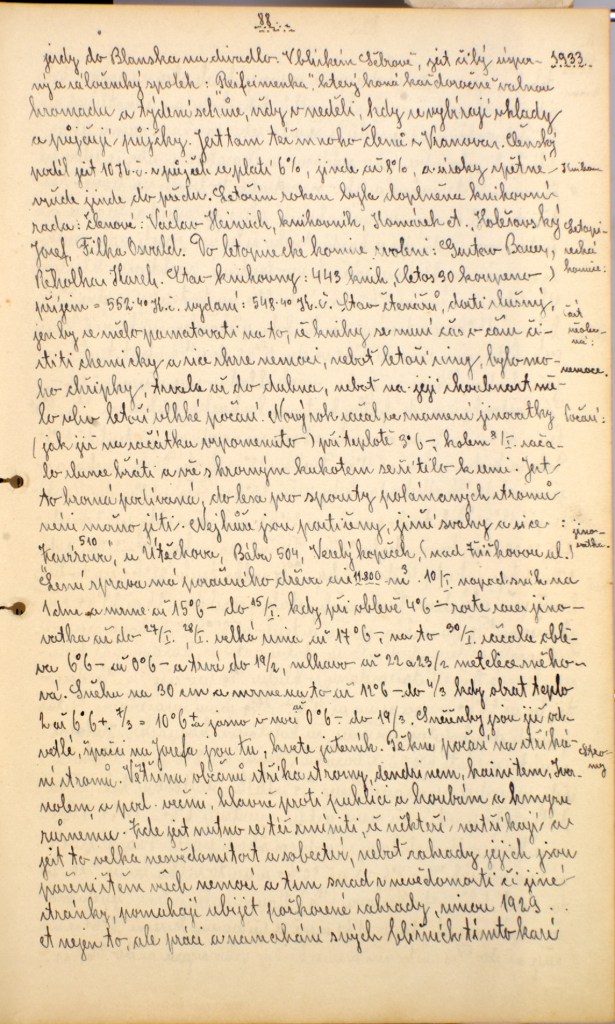 88.
1933.
jezdy do Blanska na divadlo. V blízkém Lelkově, jest čilý úspor-
ný a záloženský spolek: "Reifeisenka", který koná každoročně valnou
hromadu a týdenní schůze, vždy v neděli, kdy se vybírají vklady
a půjčují půjčky. Jest tam též mnoho členů z Vranova. Členský
podíl jest 10 Kč. z půjček se platí 6%, jinde až 8%, a úroky zpětně
všude jinde do předu. Letošním rokem byla doplněna knihovní
rada: členové: Václav Heinich, knihovník, Komárek et., Kolešovský
Josef, Filka Osvald. Do letopisecké komise zvoleni: Gustav Bauer,
Řehořka Karel. Stav knihovny: 443 knih (letos 30 koupeno)
příjem = 552.40 Kč. vydání: 548.40 Kč. Stav čtenářů, dosti slušný,
jen by se mělo pamatovati na to, že knihy se musí čas v čase či-
stiti chemicky a sice skrze nemoci, neboť letoší zimy, bylo mno-
ho chřipky, trvala až do dubna, neboť na její zhoubnost mě-
lo vliv letoší vlhké počasí. Nový rok začal ve znamení jinovatky
(jak již na začátku vzpomenuto) při teplotě 3°C-, kolem 8/I. zača-
lo slunce hřáti a vše s hrozným hukotem se řítilo k zemi. Jest
to hrozná podívaná, do lesa pro spousty polámaných stromů
není možno jíti. Nejhůře jsou postiženy, jižní svahy a sice:
"Kavřava" 510, u Útěchova, Bába 504, Veselý kopeček, (nad Tiškovou ul.)
Lesní správa má poraženého dřeva asi 11.800 m3. 10/I. napad sníh na
1 dm a mrzne až 15°C - do 25/I. kdy při oblevě 4°C - roste zases jino-
vatka až do 27/I. 28/I. velká zima až 17°C -, na to 30/I. začala oble-
va 6°C - až 0°C - a trvá do 19/2, mlhavo až 22 a 23/2 metelice sněho-
vá. Sněhu na 30 cm a mrzne na to až 12°C - do 4/3 kdy obrat teplo
2 až 6°C +. 7/3 = 10°C + a jasno v noci až 0°C - do 19/3. Sněženky jsou již od-
vetlé, špačci na Josefa jsou tu, kvete jaterník. Pěkné počasí na stříká-
ní stromů. Většina občanů stříká stromy, dendrinem, kainitem, Iva-
nolem a pod. věcmi, hlavně proti puklici a houbám a hmyzu
různému. Zde jest nutno se též zmíniti, že někteří nestříkají a
jest to velká nesvědomitost a sobectví, neboť zahrady jejich jsou
pařeništěm všech nemocí a tím snad z nevědomosti či jiné
stránky, pomahají ubíjet pošvorené zahrady, zimou 1929...
et nejen to, ale práci a namahání svých bližních tímto kazí
Knihovna
Letopi-
secká
komise:
Část
všeobec-
ná:
nemoce.
Počasí:
jino-
vatka.
Stro-
my